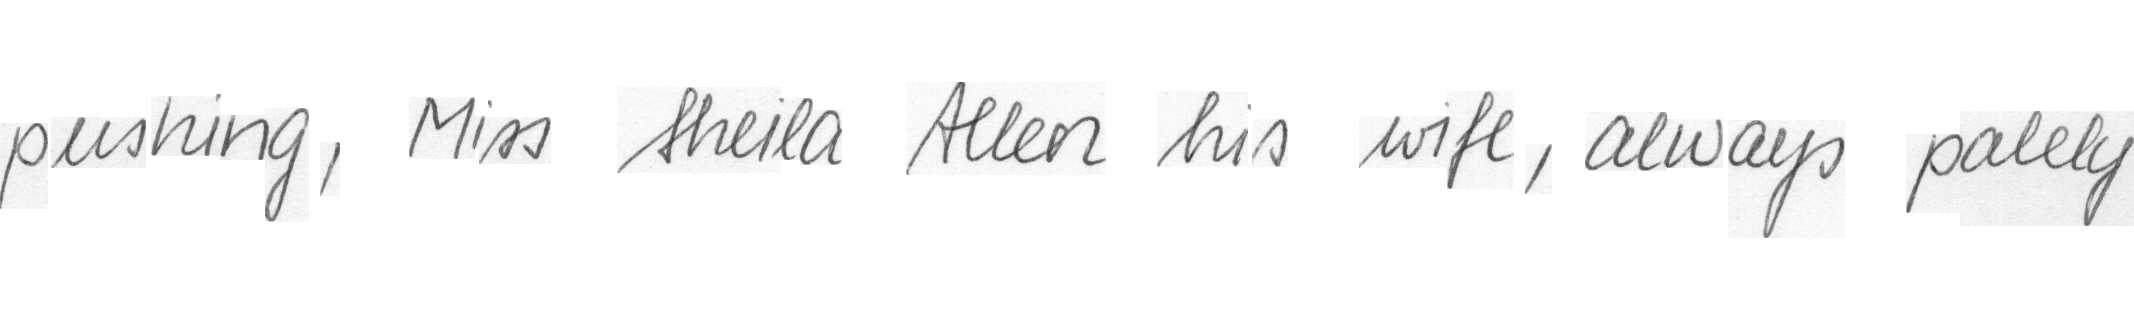 pushing, Miss Sheila Allen his wife, always palely